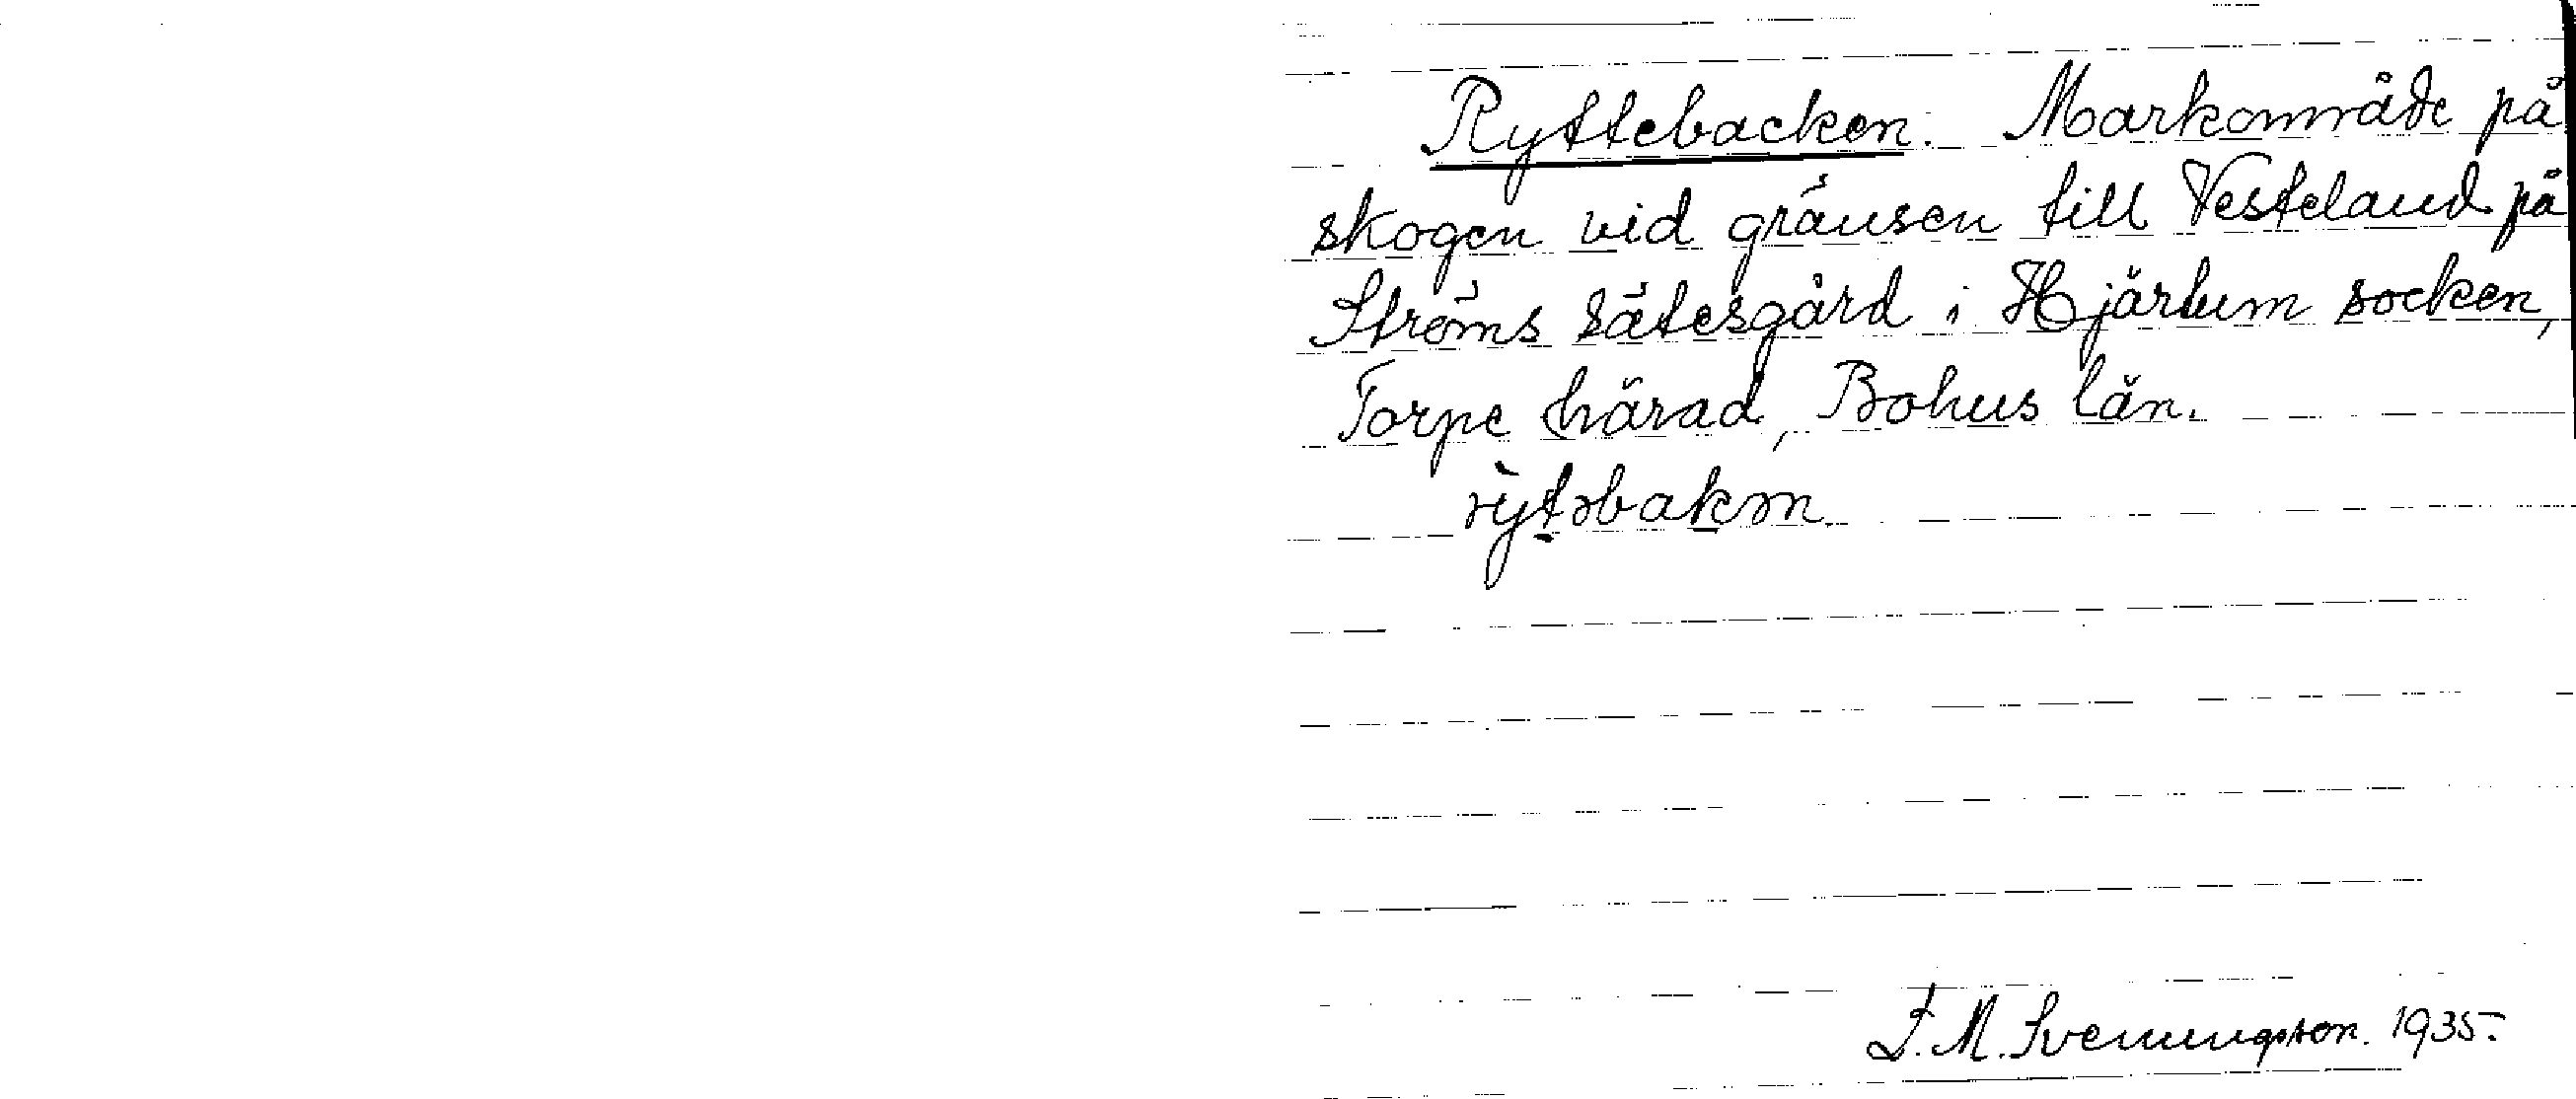 Ryttebacken. Markområde på
skogen vid gränsen till Vesteland på
Ströms sätesgård i Hjärtum socken,
Torpe härad, Bohus län.
rỳtəbakən
F. M. Svenningsson. 1935.